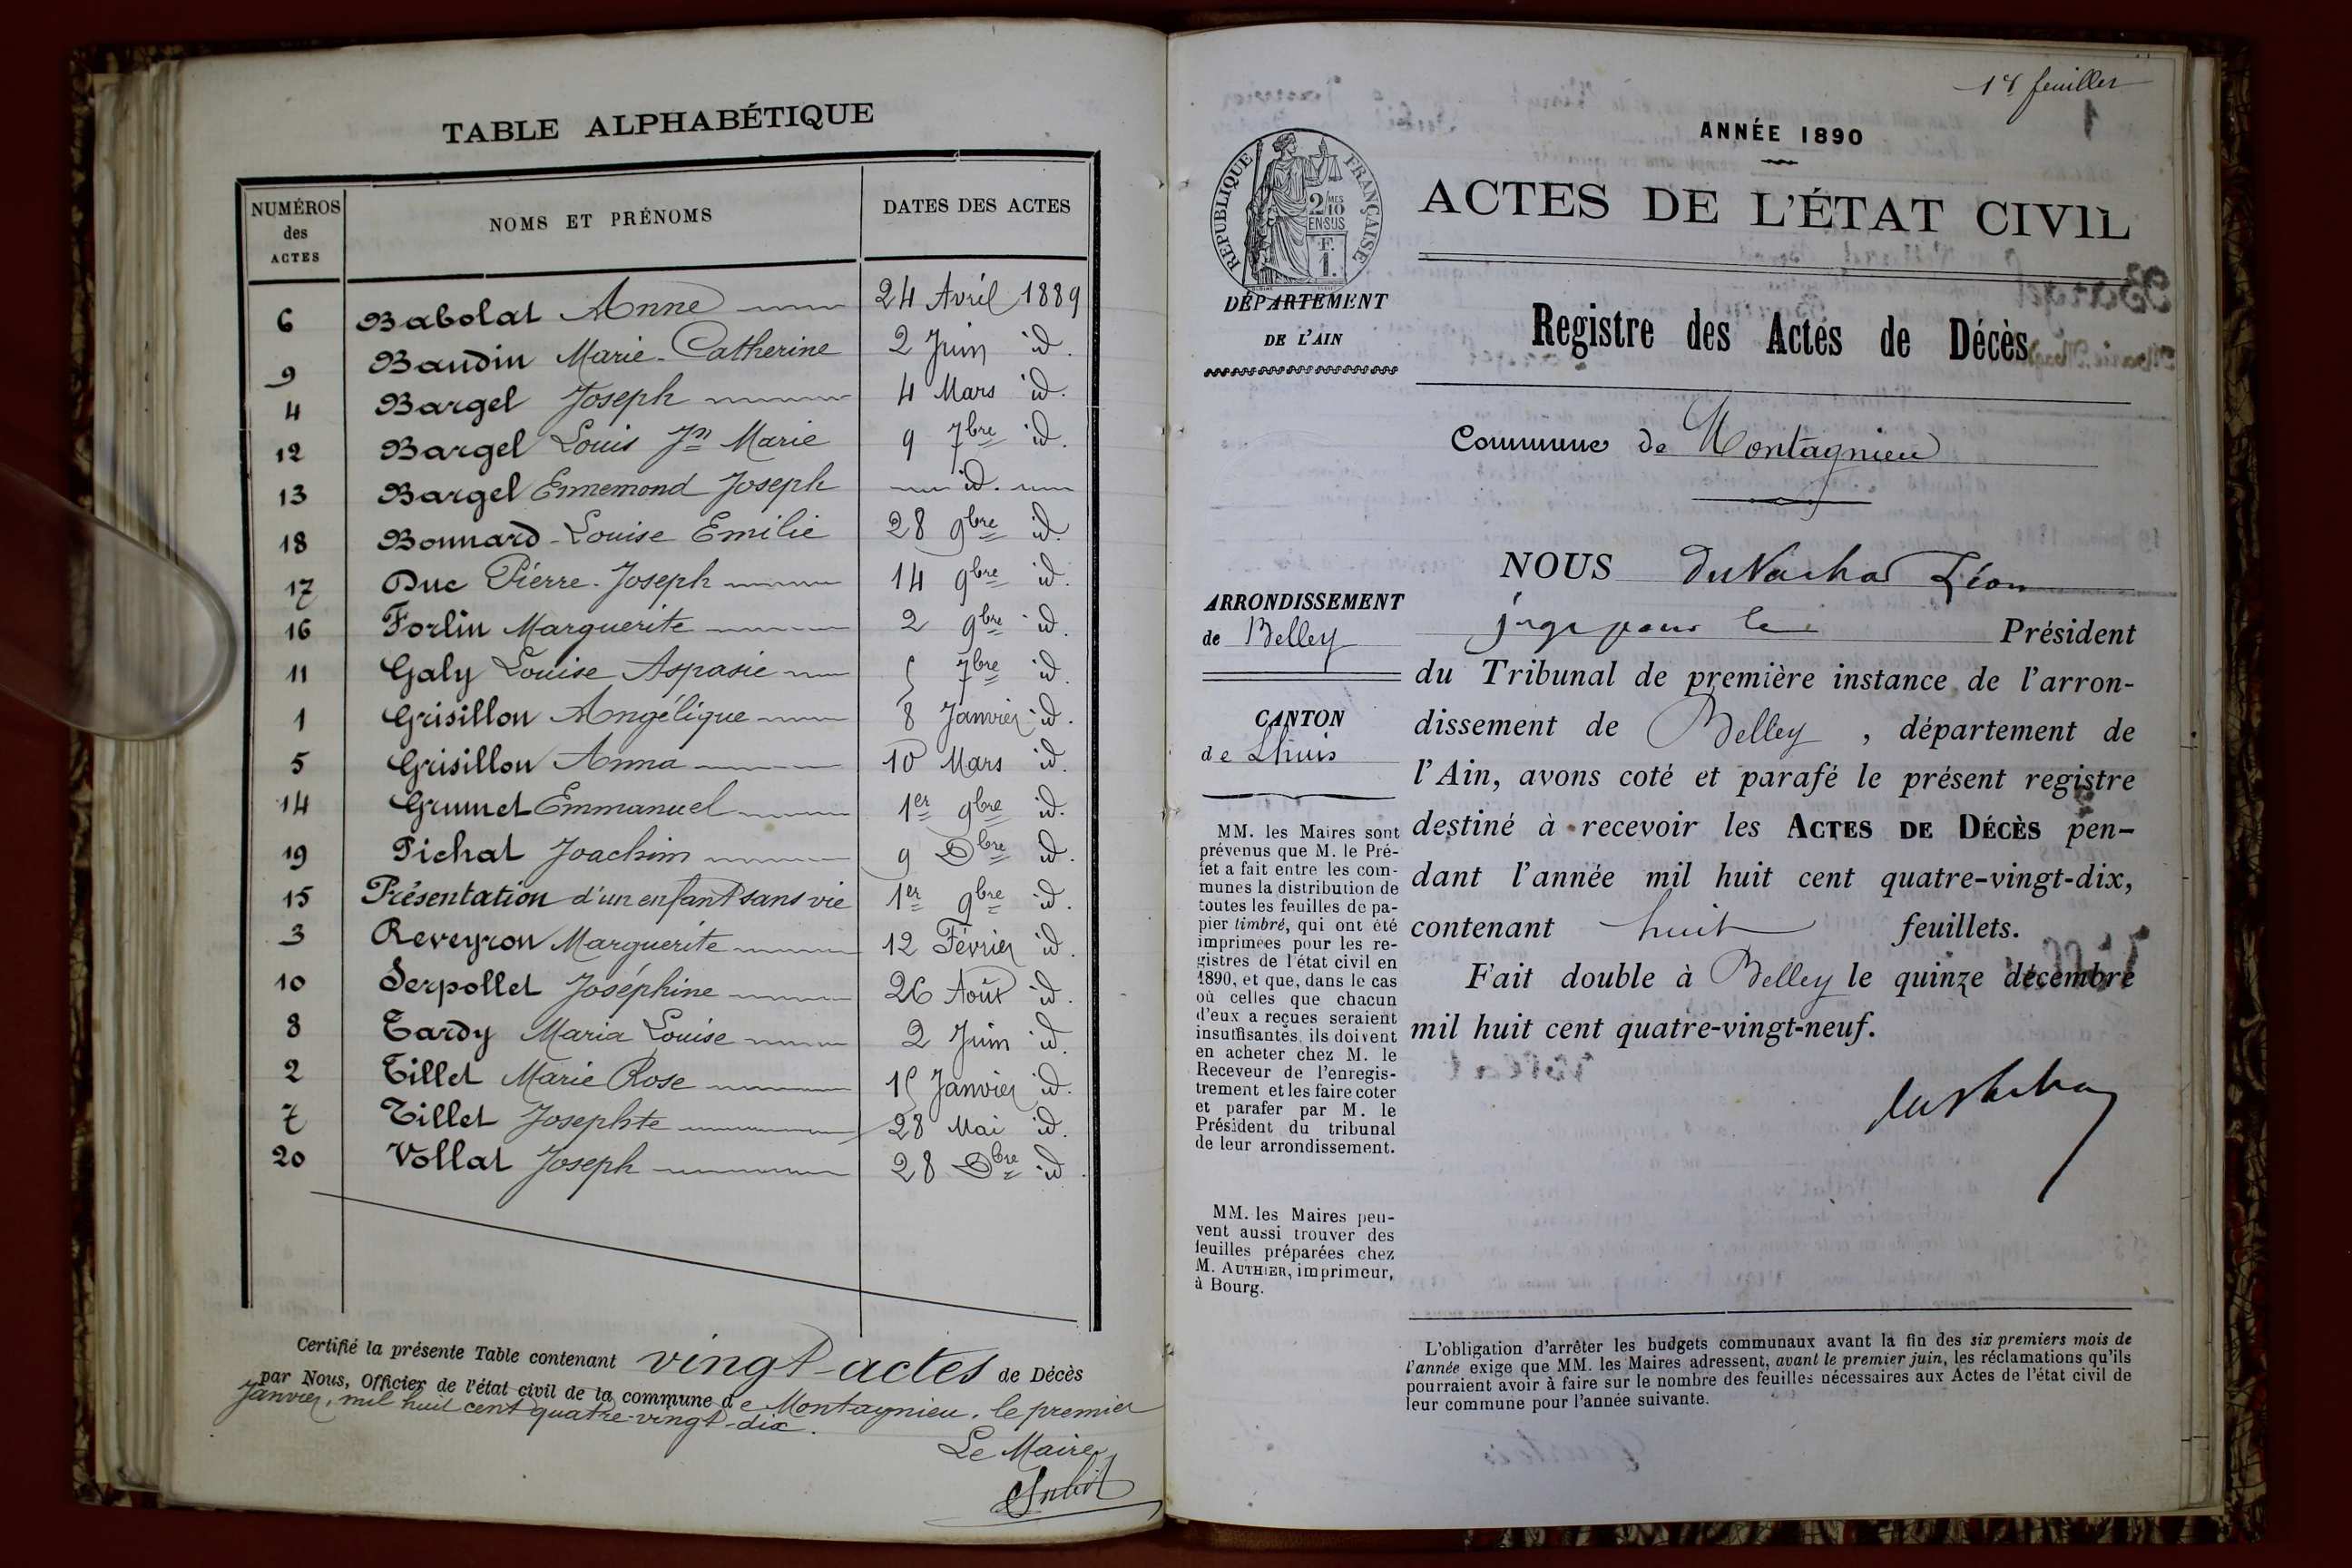 TABLE ALPHABÉTIQUE
NUMÉROS des ACTES
NOMS ET PRÉNOMS
DATES DES ACTES
6 Babolat Anne 24 Avril 1889
9 Baudin Marie-Catherine 2 Juin id.
4 Bargel Joseph 4 Mars id.
12 Bargel Louis Jn Marie 9 7bre id.
13 Bargel Ennemond Joseph id.
18 Bonnard Louise Emilie 28 9bre id.
17 Duc Pierre-Joseph 14 9bre id.
16 Forlin Marguerite 2 9bre id.
11 Galy Louise Aspasie 5 7bre id.
1 Grisillon Angélique 8 Janvier id.
5 Grisillon Anna 10 Mars id.
14 Grumet Emmanuel 1er 9bre id.
19 Pichat Joachim 9 Dbre id.
15 Présentation d'un enfant sans vie 1er 9bre id.
3 Reveyron Marguerite 12 Février id.
10 Serpollet Joséphine 26 Août id.
8 Tardy Maria Louise 2 Juin id.
2 Tillet Marie Rose 15 Janvier id.
7 Tillet Josephte 28 Mai id.
20 Vollat Joseph 28 Dbre id.
Certifié la présente Table contenant vingt actes de Décès
par Nous, Officier de l'état civil de la commune de Montagnieu, le premier
Janvier, mil huit cent quatre-vingt-dix.
Le Maire
18 feuilles
1
ANNÉE 1890
ACTES DE L'ÉTAT CIVIL
RÉPUBLIQUE FRANÇAISE
2/10 MES
EN SUS
F.
1.
DÉPARTEMENT
DE L'AIN
Registre des Actes de Décès
Commune de Montagnieu
ARRONDISSEMENT
de Belley
CANTON
de Lhuis
MM. les Maires sont
prévenus que M. le Pré-
fet a fait entre les com-
munes la distribution de
toutes les feuilles de pa-
pier timbré, qui ont été
imprimées pour les re-
gistres de l'état civil en
1890, et que, dans le cas
où celles que chacun
d'eux a reçues seraient
insuffisantes, ils doivent
en acheter chez M. le
Receveur de l'enregis-
trement et les faire coter
et parafer par M. le
Président du tribunal
de leur arrondissement.
MM. les Maires peu-
vent aussi trouver des
feuilles préparées chez
M. AUTHIER, imprimeur,
à Bourg.
NOUS Léon
juge pour le Président
du Tribunal de première instance de l'arron-
dissement de Belley, département de
l'Ain, avons coté et parafé le présent registre
destiné à recevoir les ACTES DE DÉCÈS pen-
dant l'année mil huit cent quatre-vingt-dix,
contenant huit feuillets.
Fait double à Belley le quinze décembre
mil huit cent quatre-vingt-neuf.
L'obligation d'arrêter les budgets communaux avant la fin des six premiers mois de
l'année exige que MM. les Maires adressent, avant le premier juin, les réclamations qu'ils
pourraient avoir à faire sur le nombre des feuilles nécessaires aux Actes de l'état civil de
leur commune pour l'année suivante.